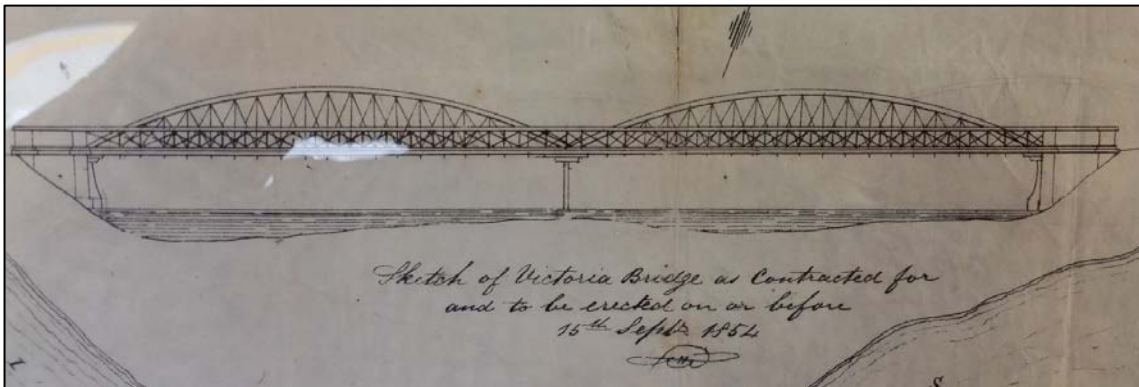 Sketch of Victoria Bridge as Contracted for
and to be erected on or before
15th Septr 1854